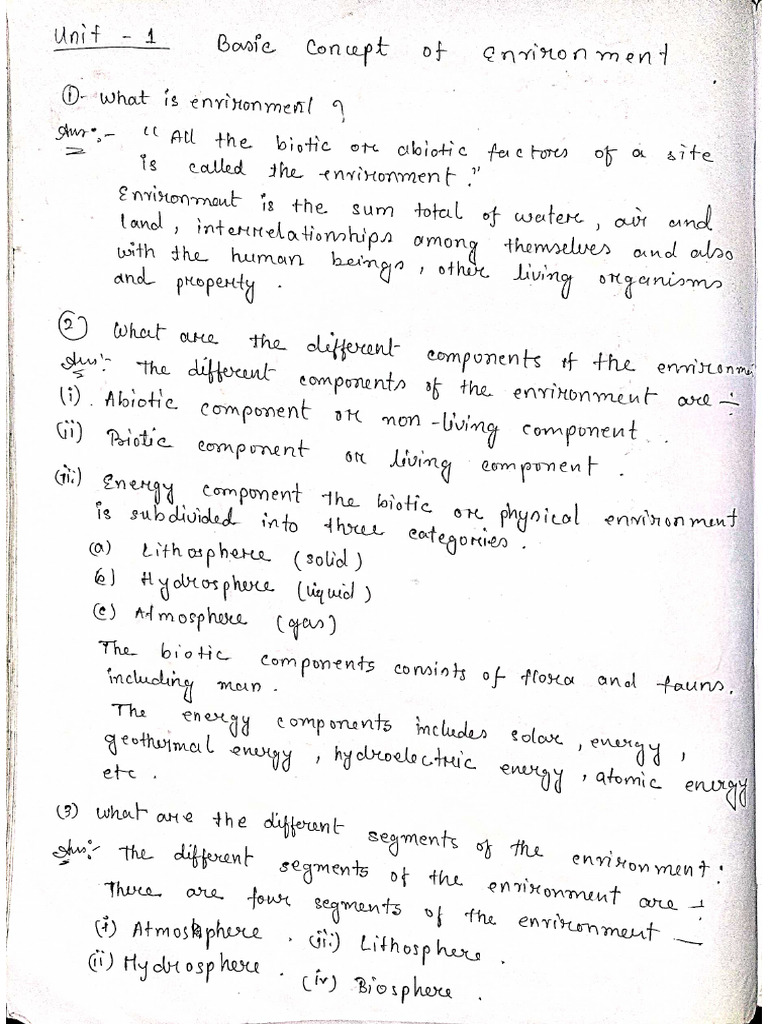 Unit - 1 Basic Concept of Environment
① - What is environment ?
Ans:- "All the biotic or abiotic factors of a site
is called the environment."
Environment is the sum total of water, air and
land, interrelationships among themselves and also
with the human beings, other living organisms
and property.
② What are the different components of the environme
Ans:- The different components of the environment are :-
(i). Abiotic component or non-living component.
(ii) Biotic component or living component.
(iii) Energy component the biotic or physical environment
is subdivided into three categories.
(a) Lithosphere (solid)
(b) Hydrosphere (liquid)
(c) Atmosphere (gas)
The biotic components consists of flora and fauns.
including man.
The energy components includes solar, energy,
geothermal energy, hydroelectric energy, atomic energy
etc.
(3) What are the different segments of the environment:
Ans:- The different segments of the environment are :-
There are four segments of the environment —
(i) Atmosphere. (iii) Lithosphere.
(ii) Hydrosphere. (iv) Biosphere.